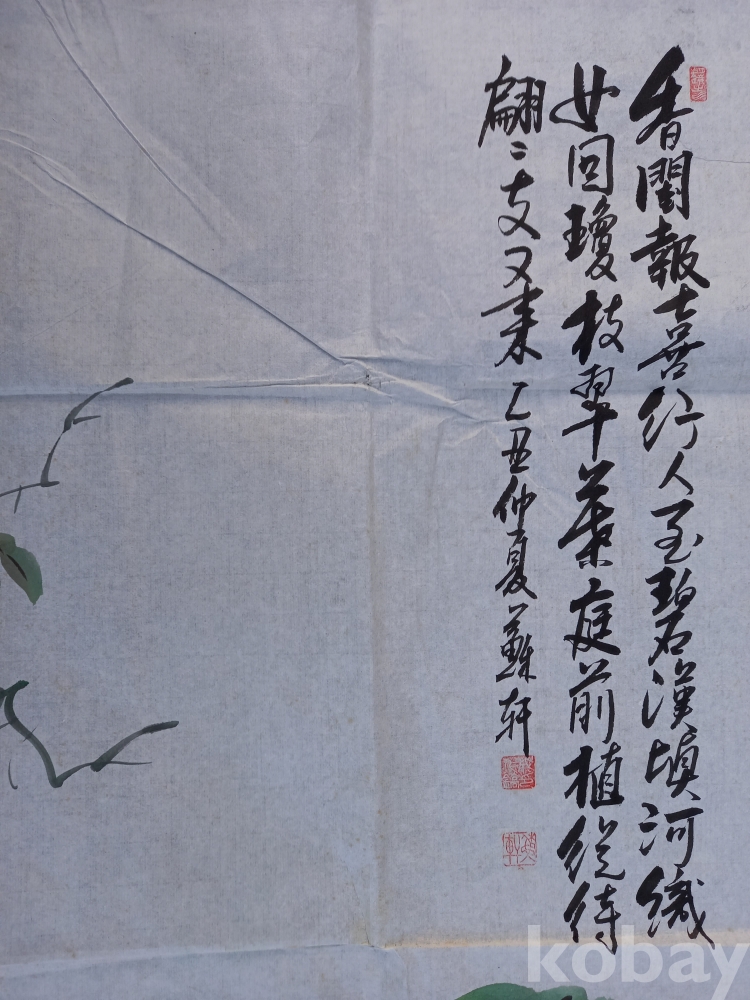 香閨報喜行人至碧漢填河織
女回瓊枝翠葉庭前植從待
翩〻去又來 乙丑仲夏 蘇軒
kobay